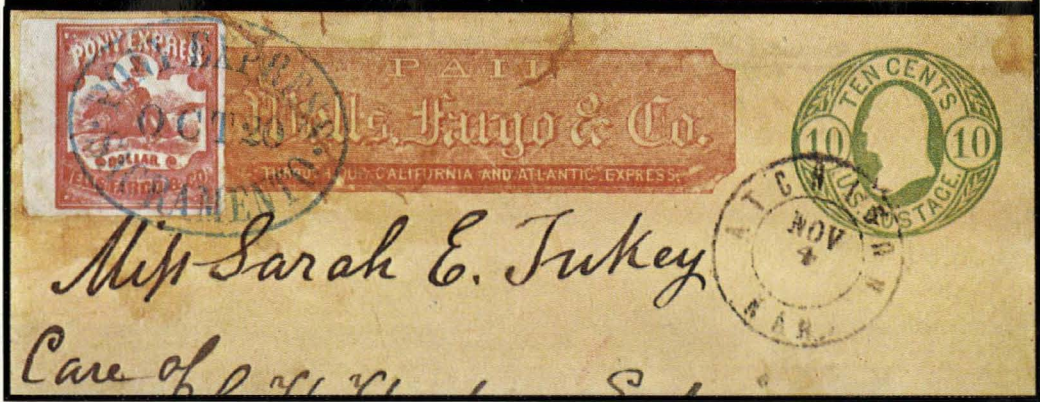 PONY EXPRESS
DOLLAR
WELLS, FARGO & CO.
PONY EXPRESS
OCT 20
SACRAMENTO
PAID
Wells, Fargo & Co.
THROUGH OUR CALIFORNIA AND ATLANTIC EXPRESS.
TEN CENTS
10 10
U.S. POSTAGE.
ATCHISON
NOV
4
KAN.
Miss Sarah E. Tukey
Care of